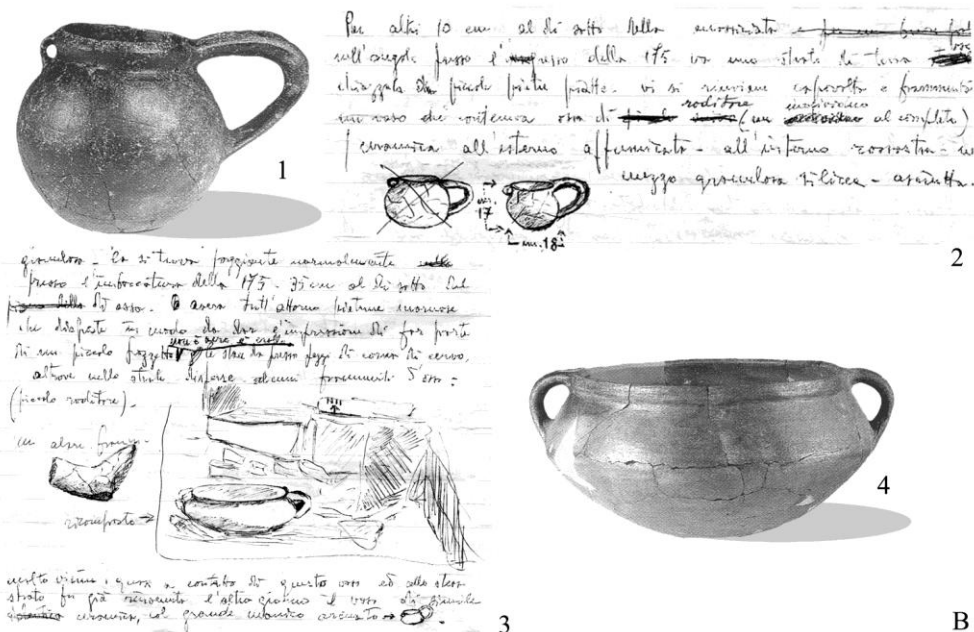 Per altri 10 cm. al di sotto della
sull'angolo presso l'ingresso della 175 va uno strato di terra
di piccole pietre piatte - vi si rinviene capovolto e frammentato
roditore
un vaso che conteneva ossa di (un al completo)
ceramica all'esterno affumicata - all'interno rossastra -
mezzo granulosa silicea - asciutta.
cm. 17
cm. 18
1
2
granulosa - Lo si trova poggiante normalmente
presso l'imboccatura della 175 - 35 cm al di sotto del
di esso. aveva tutt'attorno pietrame
che disposte in modo da dar l'impressione di far parte
non è vero è
di un piccolo pozzetto presso pezzi di corna di cervo,
altrove nello strato disperse alcuni frammenti d'osso:
(piccolo roditore).
un altro
ricomposto →
molto vicino, quasi a contatto di questo vaso ed allo stesso
strato fu già rinvenuto l'altro giorno il vaso di simile
ceramica, col grande manico arcuato →
3
4
B